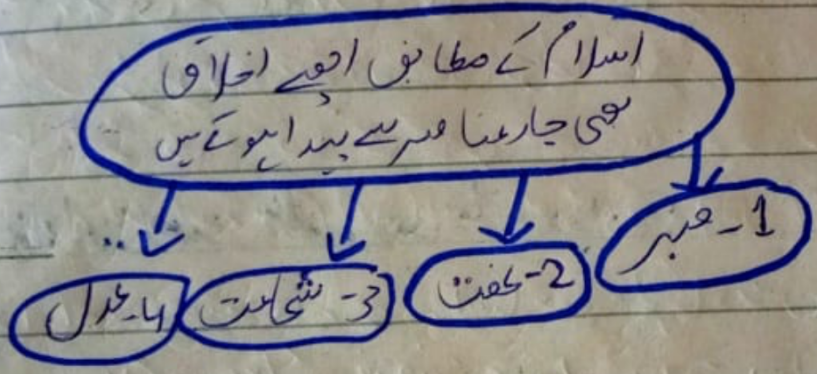 اسلام کے مطابق اچھے اخلاق
بھی چار عناصر سے پیدا ہوتے ہیں
1- صبر
2- عفت
3- شجاعت
4- عدل